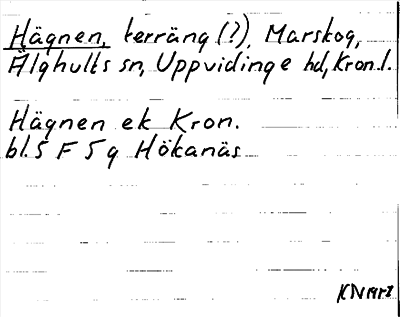 Hägnen, terräng (?), Marskog,
Älghults sn, Uppvidinge hd, Kron. l.
Hägnen ek Kron.
bl. 5 F 5 g Hökanäs